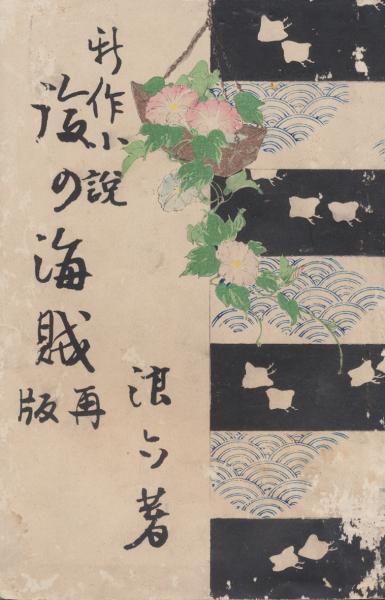 新作小説
後の海賊
再版
浪六著